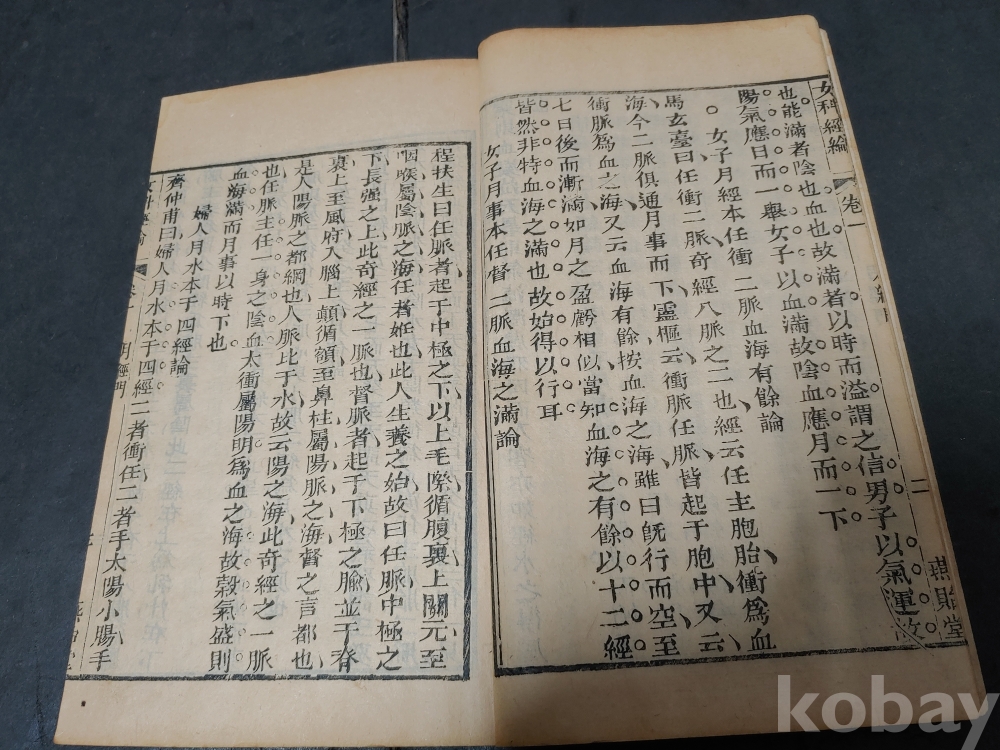 女科經綸
卷一
二
燕貽堂
也能滿者陰也血也故滿者以時而溢謂之信男子以氣運故
陽氣應日而一舉女子以血滿故陰血應月而一下
女子月經本任衝二脈血海有餘論
馬玄臺曰任衝二脈奇經八脈之二也經云任主胞胎衝爲血
海今二脈俱通月事而下靈樞云衝脈任脈皆起于胞中又云
衝脈爲血之海又云血海有餘按血海之海雖曰旣行而空至
七日後而漸滿如月之盈虧相似當知血海之有餘以十二經
皆然非特血海之滿也故始得以行耳
女子月事本任督二脈血海之滿論
程扶生曰任脈者起于中極之下以上毛際循腹裏上關元至
咽喉屬陰脈之海任者姙也此人生養之始故曰任脈中極之
下長强之上此奇經之一脈也督脈者起于下極之腧並于脊
裏上至風府入腦上顛循額至鼻柱屬陽脈之海督之言都也
是人陽脈之都綱也人脈比于水故云陽之海此奇經之一脈
也任脈主任一身之陰血太衝屬陽明爲血之海故穀氣盛則
血海滿而月事以時下也
婦人月水本于四經論
齊仲甫曰婦人月水本于四經二者衝任二者手太陽小腸手
月經門